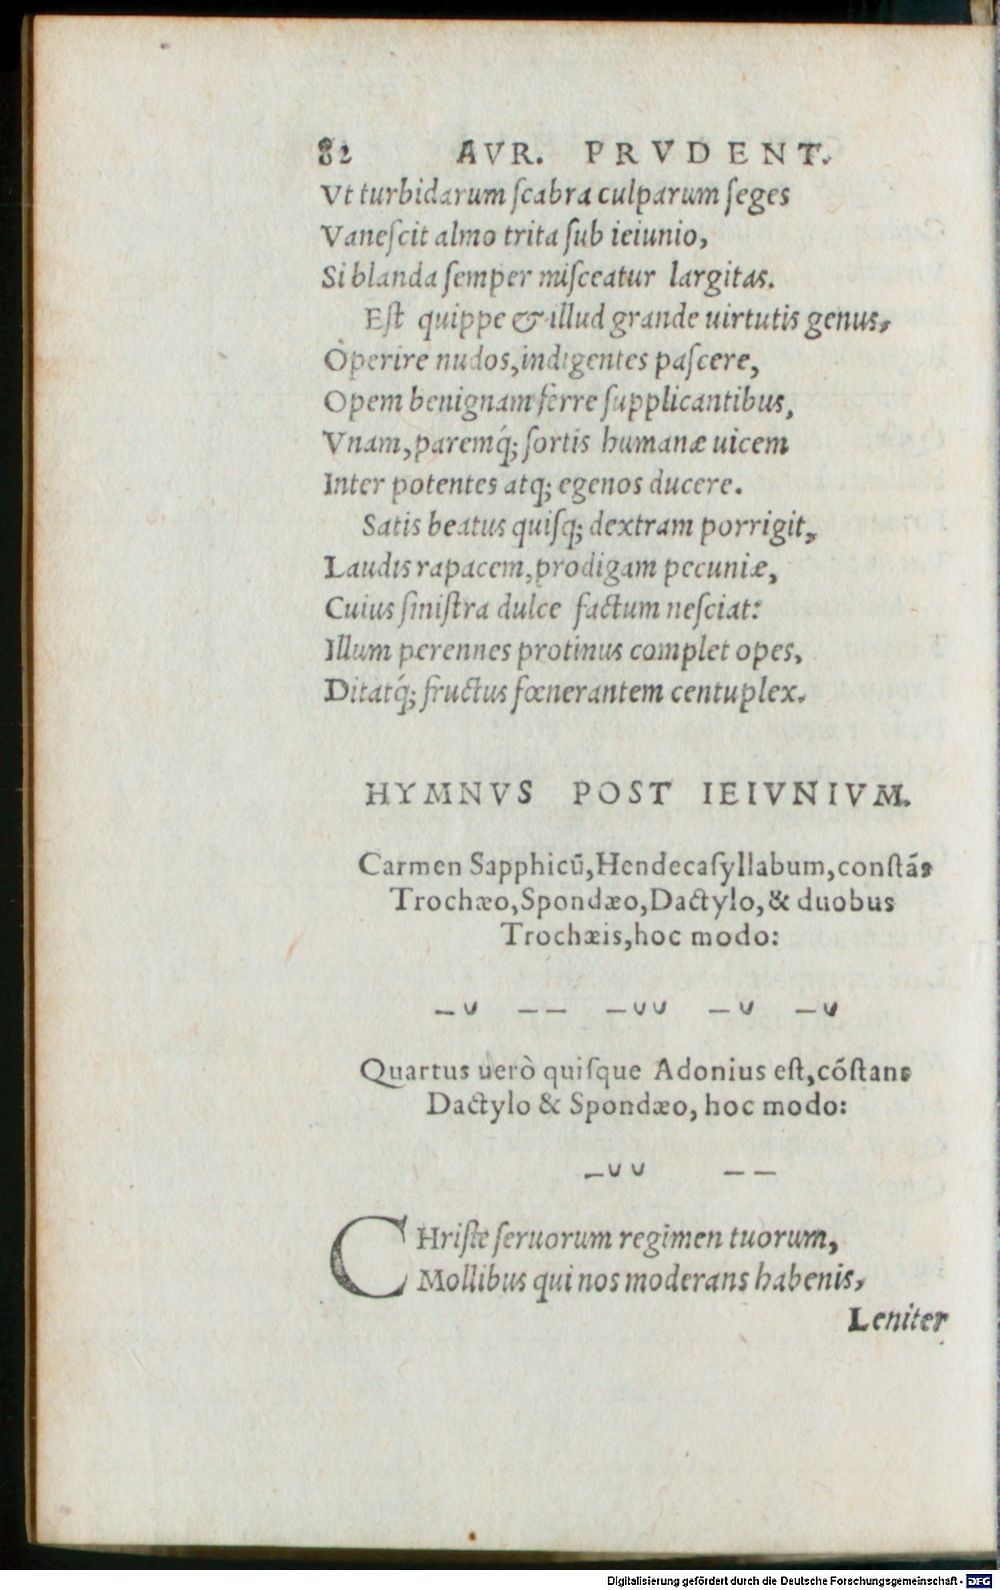 82 AVR. PRVDENT.
Vt turbidarum ſcabra culparum ſeges
Vaneſcit almo trita ſub ieiunio,
Si blanda ſemper miſceatur largitas.
Eſt quippe & illud grande uirtutis genus,
Operire nudos, indigentes paſcere,
Opem benignam ferre ſupplicantibus,
Vnam, paremq́; ſortis humanæ uicem
Inter potentes atq; egenos ducere.
Satis beatus quiſq; dextram porrigit,
Laudis rapacem, prodigam pecuniæ,
Cuius ſiniſtra dulce factum neſciat:
Illum perennes protinus complet opes,
Ditatq́; fructus fœnerantem centuplex.
HYMNVS POST IEIVNIVM.
Carmen Sapphicū, Hendecaſyllabum, conſtās
Trochæo, Spondæo, Dactylo, & duobus
Trochæis, hoc modo:
–◡ –– –◡◡ –◡ –◡
Quartus uerò quiſque Adonius eſt, cōſtans
Dactylo & Spondæo, hoc modo:
–◡◡ ––
CHriſte ſeruorum regimen tuorum,
Mollibus qui nos moderans habenis,
Leniter
Digitalisierung gefördert durch die Deutsche Forschungsgemeinschaft - DFG